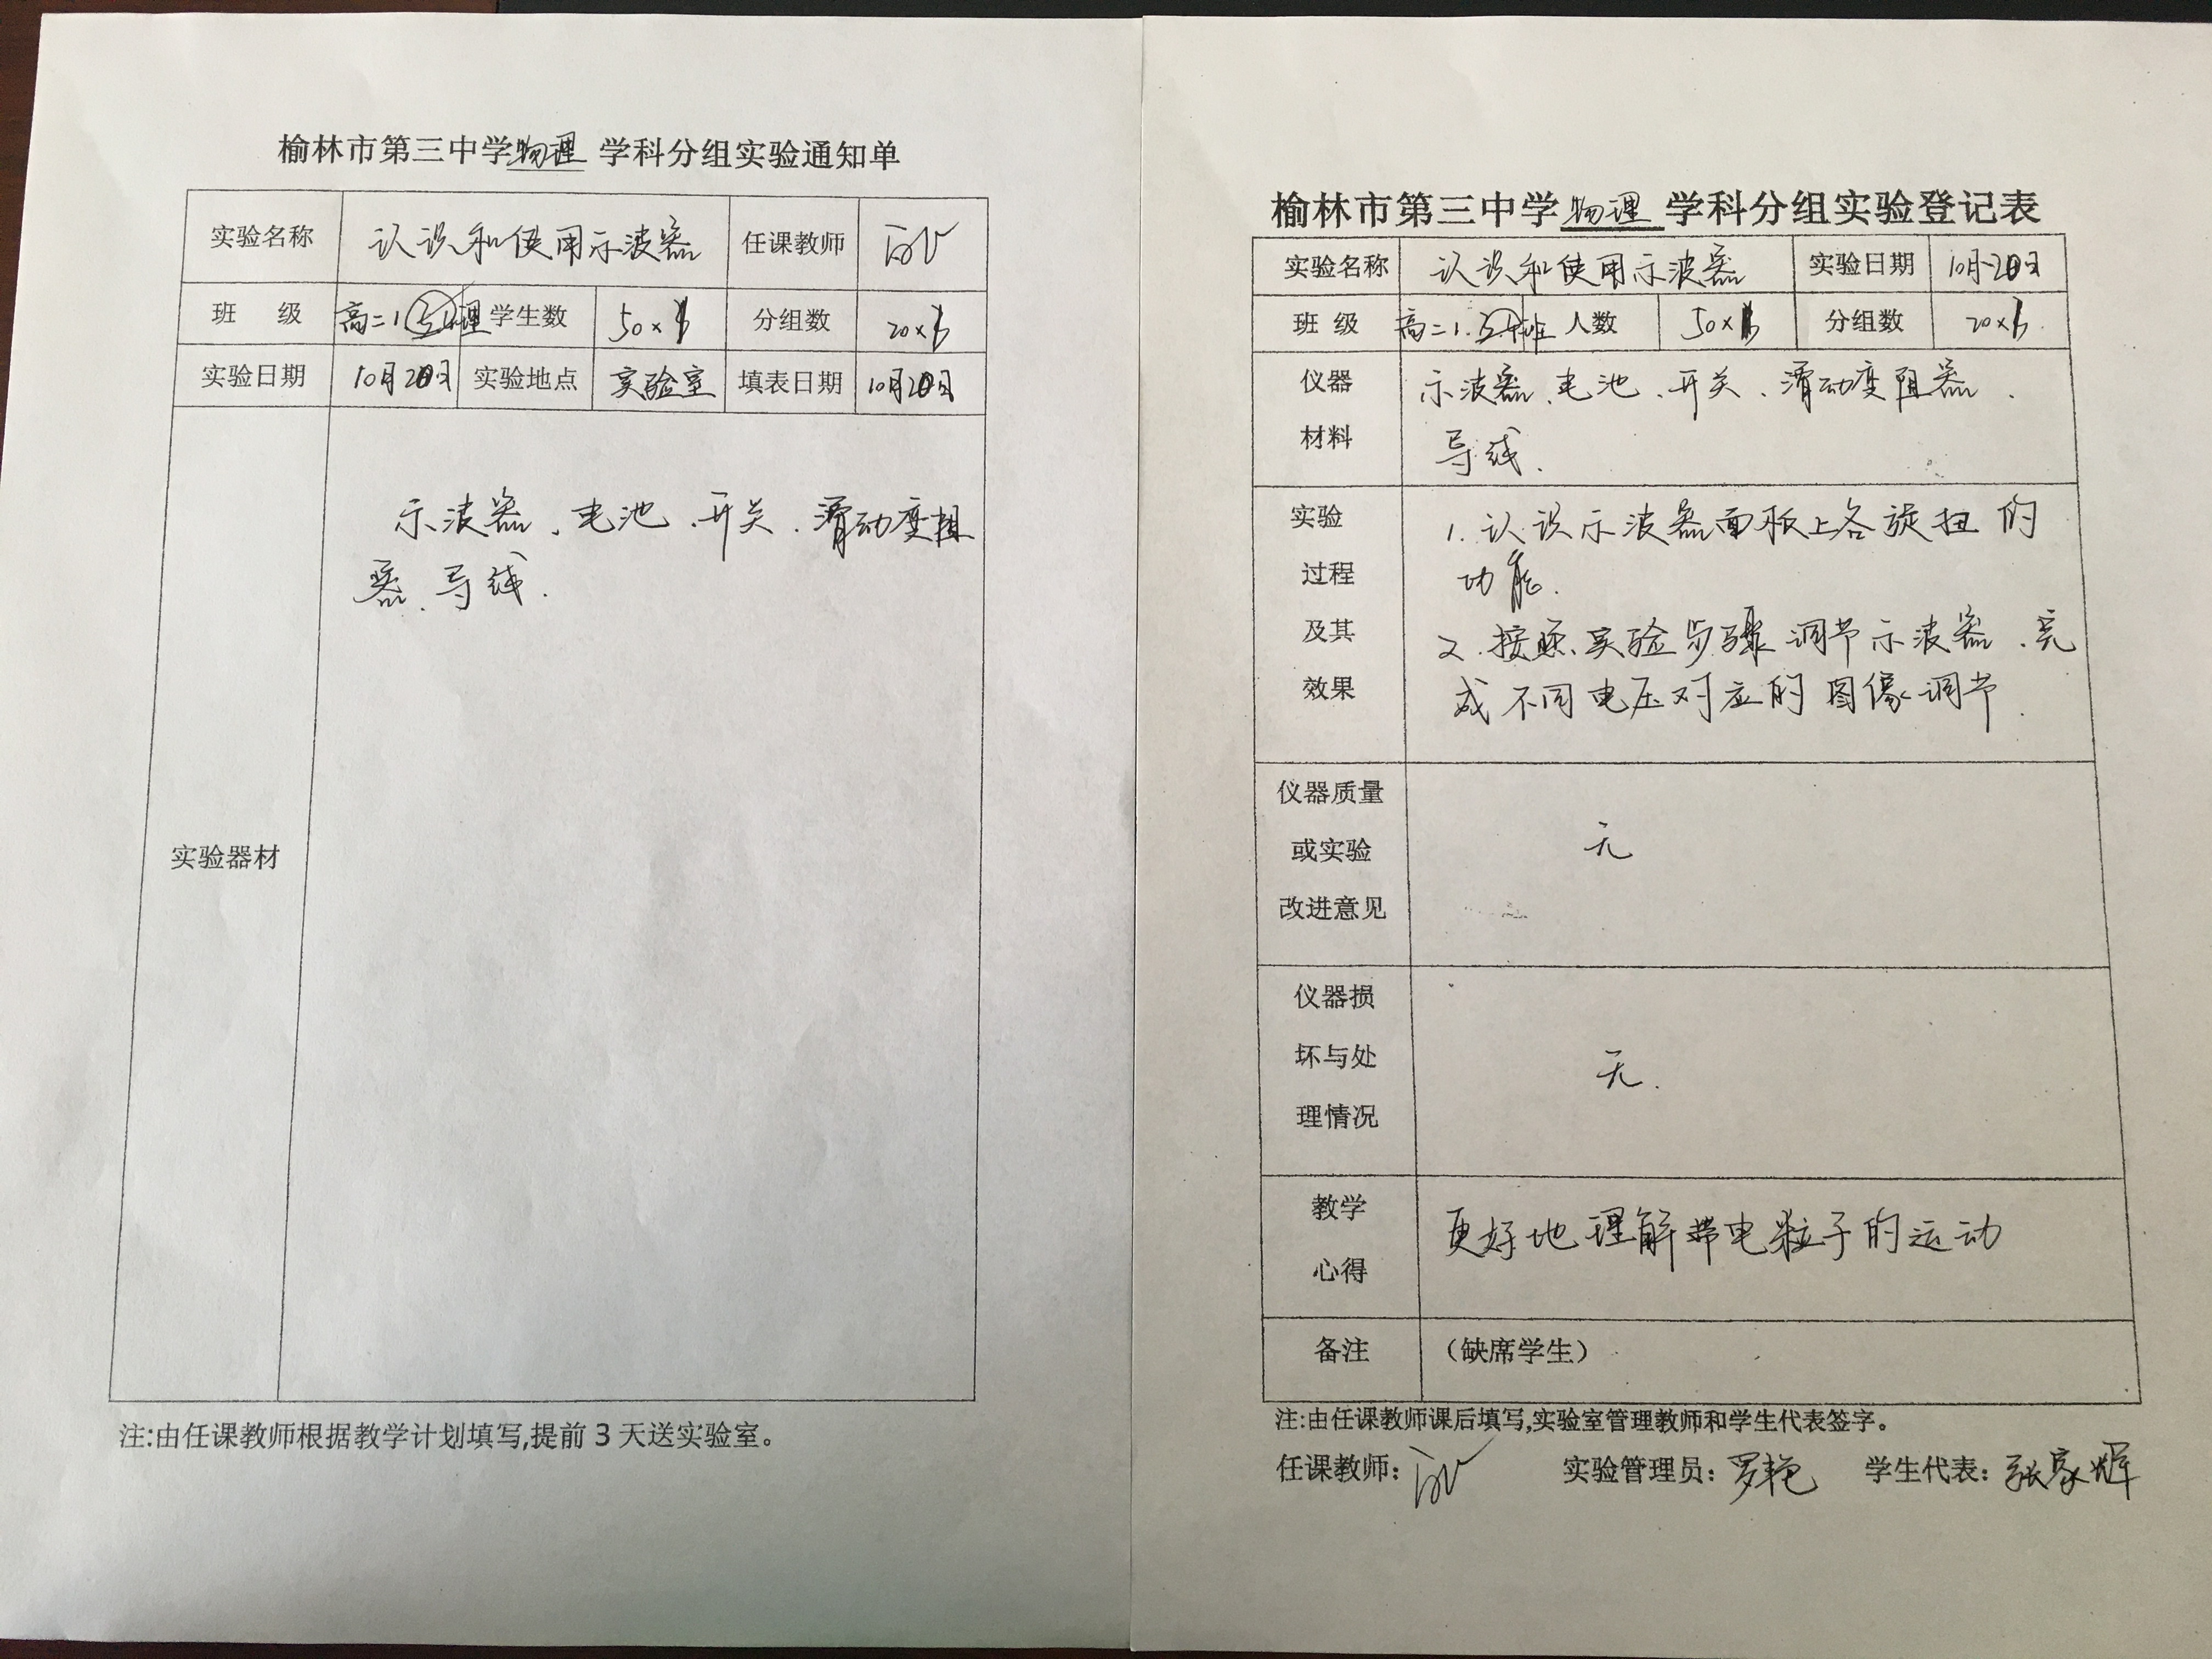 榆林市第三中学物理 学科分组实验通知单
实验名称 认识和使用示波器 任课教师
班 级 高二1 学生数 50× 分组数 20×
实验日期 10月20日 实验地点 实验室 填表日期 10月20日
实验器材
示波器、电池、开关、滑动变阻
器、导线.
注:由任课教师根据教学计划填写,提前3天送实验室。
榆林市第三中学物理 学科分组实验登记表
实验名称 认识和使用示波器 实验日期 10月20日
班 级 高二1. 班 人数 50× 分组数 20×
仪器
材料
示波器、电池、开关、滑动变阻器、
导线.
实验
过程
及其
效果
1.认识示波器面板上各旋扭的
功能.
2.按照实验步骤调节示波器、完
成不同电压对应的图像调节.
仪器质量
或实验
改进意见
无
仪器损
坏与处
理情况
无.
教学
心得
更好地理解带电粒子的运动
备注 （缺席学生）
注:由任课教师课后填写,实验室管理教师和学生代表签字。
任课教师: 实验管理员:罗艳 学生代表:张家辉